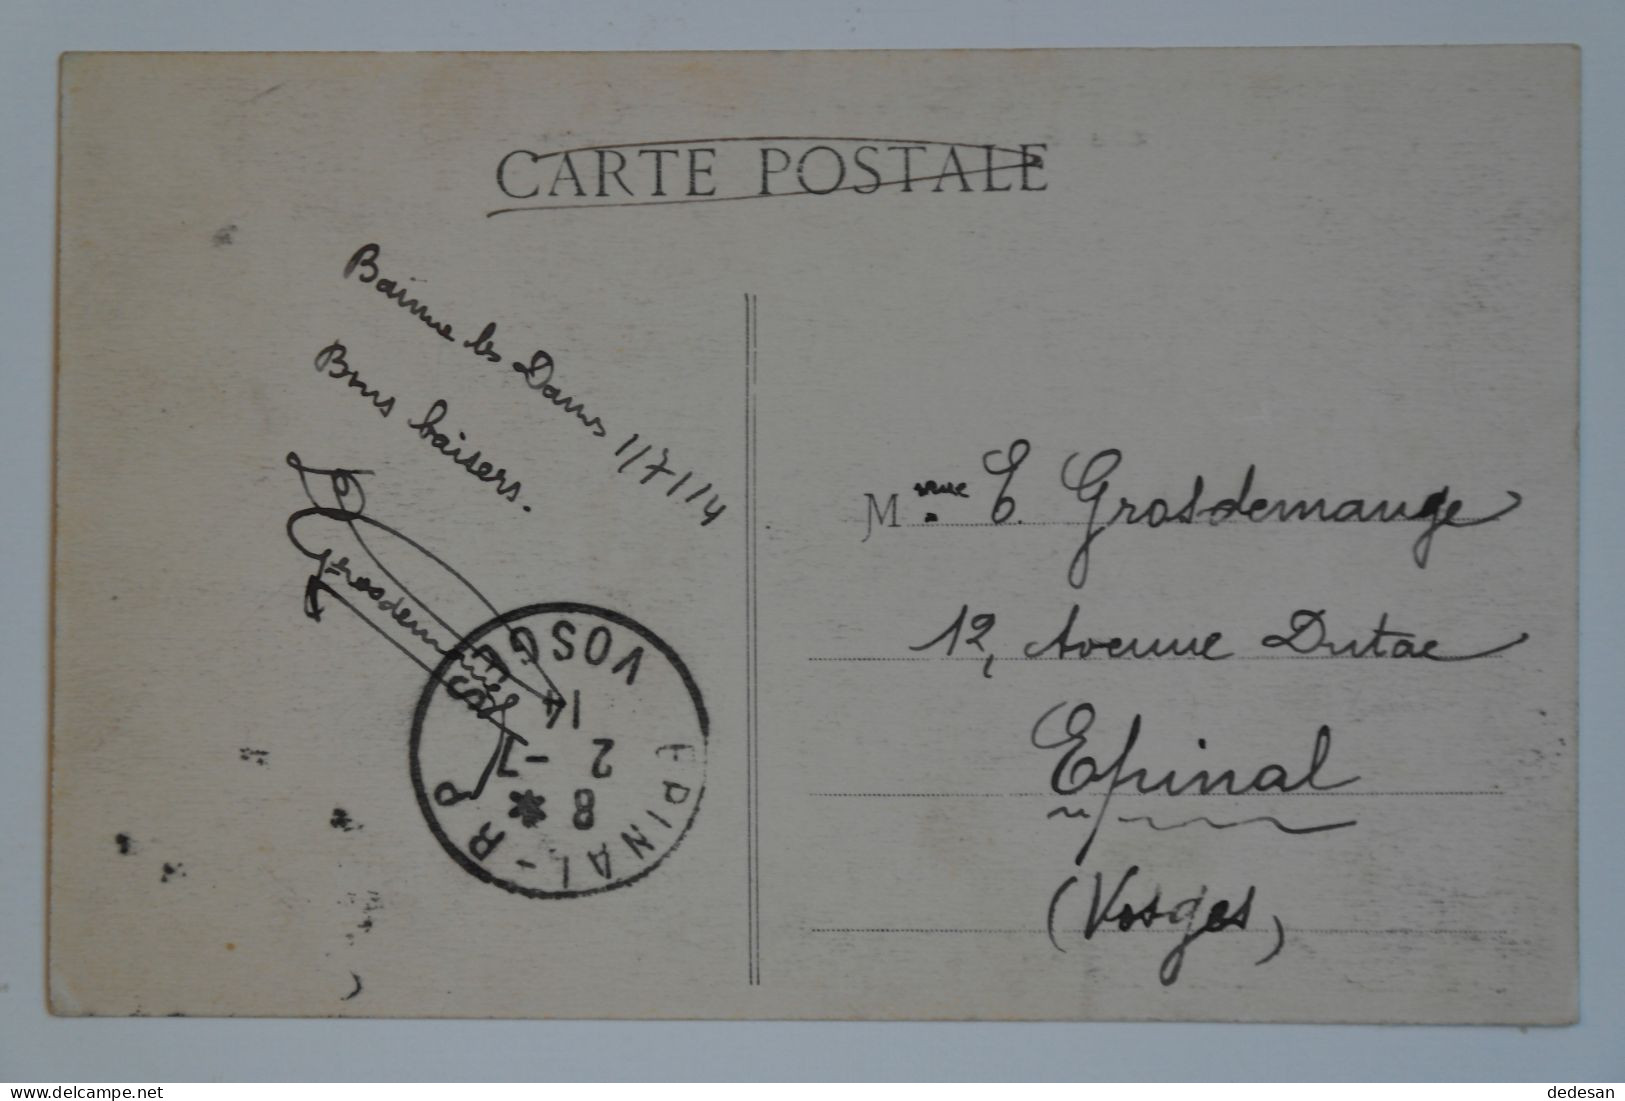 CARTE POSTALE
Baume les Dames 1/7/14
Bons baisers.
Grosdemange
EPINAL - R. P.
8 *
2 - 7
14
VOSGES
Mme E. Grosdemange
12, Avenue Dutac
Epinal
(Vosges)
delcampe.net
dedesan